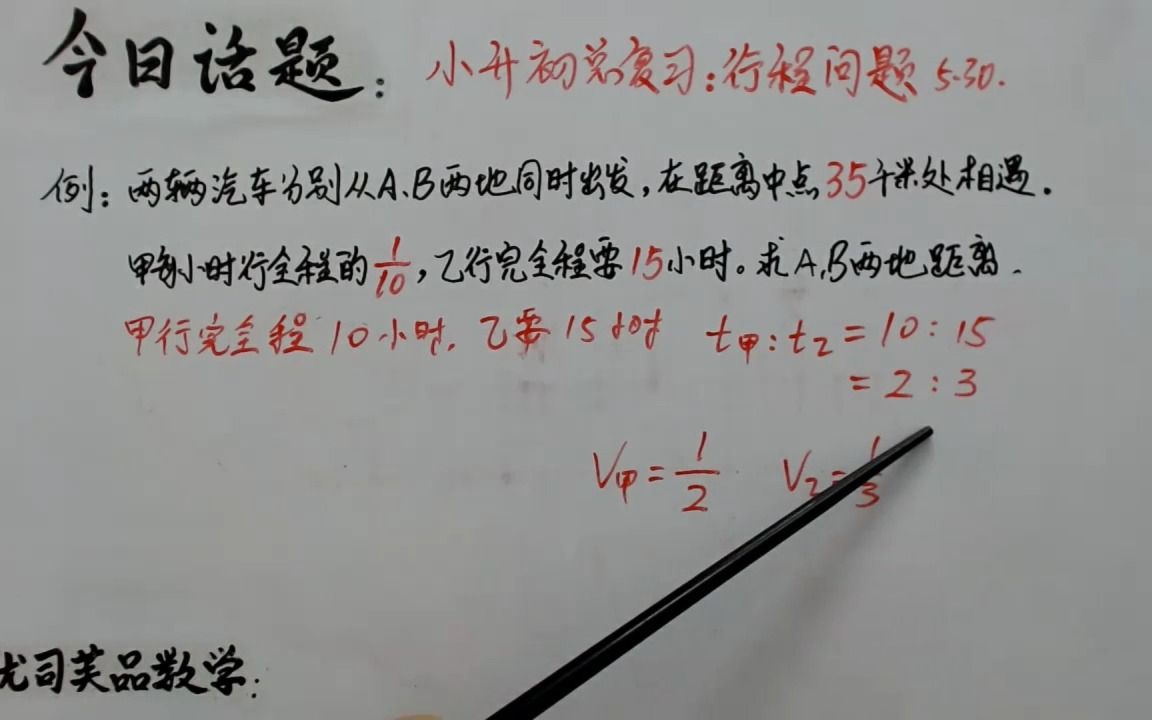 今日话题：小升初总复习：行程问题 5.30.
例：两辆汽车分别从A、B两地同时出发，在距离中点35千米处相遇。
甲每小时行全程的1/10，乙行完全程要15小时。求A、B两地距离。
甲行完全程10小时，乙要15小时 t甲：t乙＝10：15
＝2：3
V甲＝1/2 V乙＝1/3
尤司芙品数学：